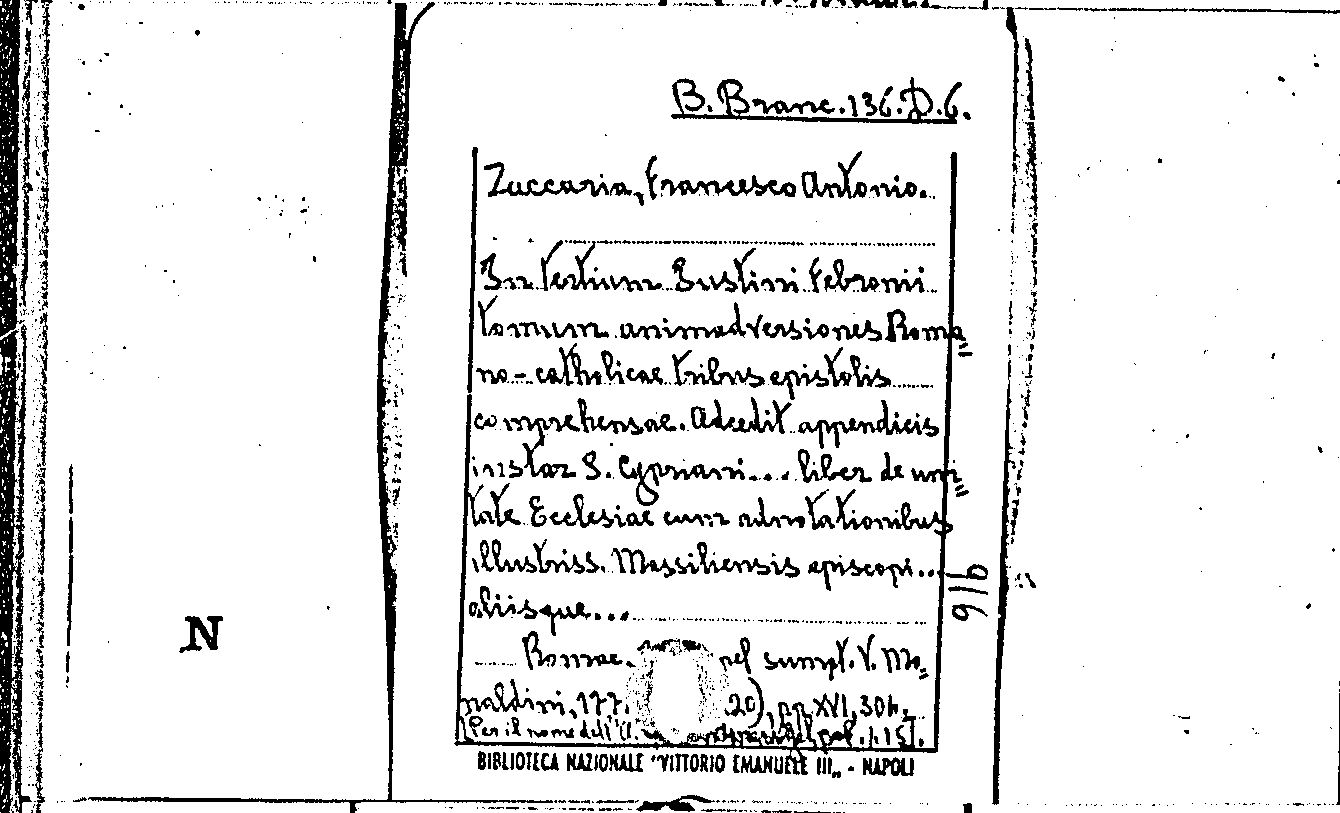 B. Branc. 136. D. 6.
Zuccaria, Francesco Antonio.
In tertium Justini Febronii
tomum animadversiones Roma„
no-catholicae tribus epistolis
comprehensae. Adcedit appendicis
instar S. Cypriani... liber de uni„
tate Ecclesiae cum adnotationibus
illustriss. Massiliensis episcopi...
aliisque...
Romae. sumpt. V. Mo„
naldini, 177 20), pp. XVI, 304.
(Per il nome dell'A. p. 15].
916
N
BIBLIOTECA NAZIONALE "VITTORIO EMANUELE III„ - NAPOLI